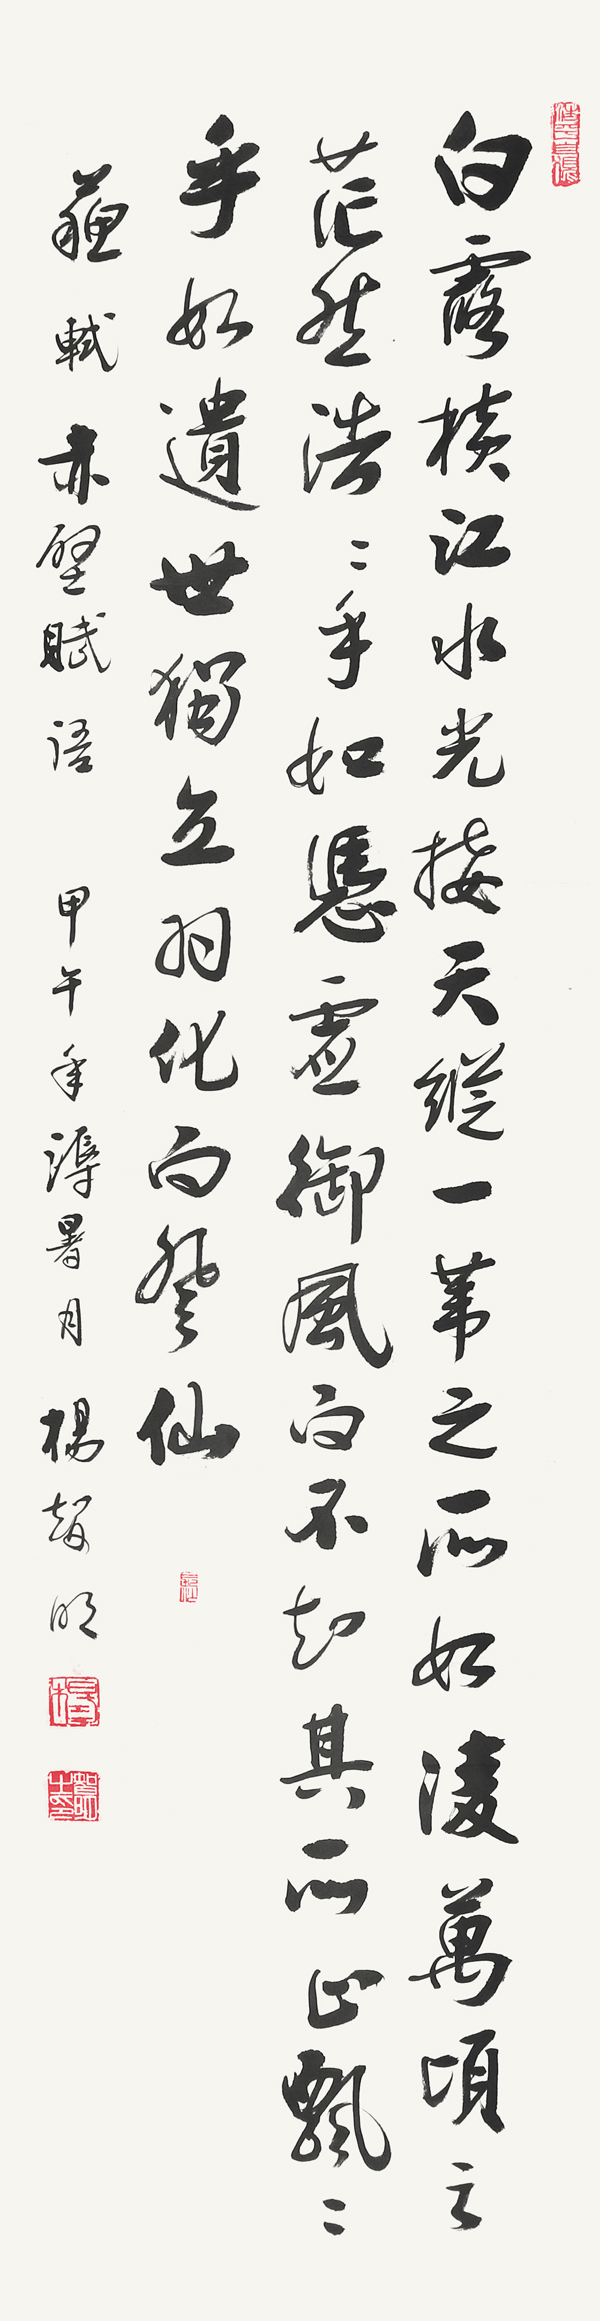 白露横江水光接天縱一葦之所如凌萬頃之
茫然浩〻乎如憑虛御風而不知其所止飄〻
乎如遺世獨立羽化而登仙
蘇軾赤壁賦語 甲午年溽暑月 楊超明